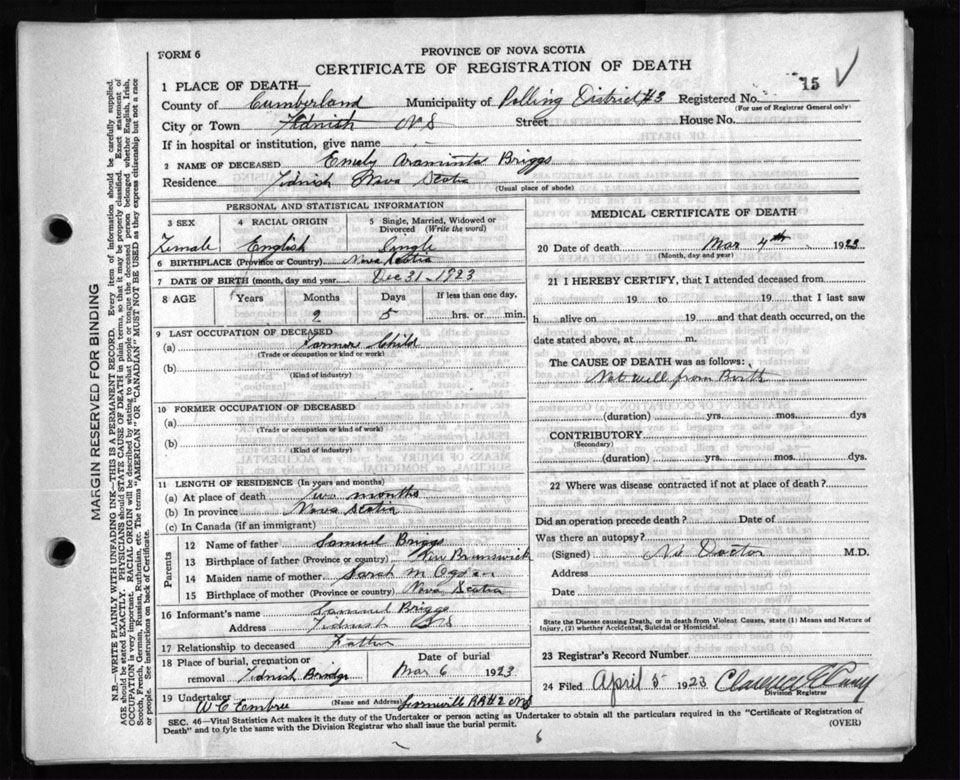 FORM 6
PROVINCE OF NOVA SCOTIA
CERTIFICATE OF REGISTRATION OF DEATH
15 ✓
1 PLACE OF DEATH
County of Cumberland Municipality of Polling District #3 Registered No.
(For use of Registrar General only)
City or Town Tidnish NS Street House No.
If in hospital or institution, give name
2 NAME OF DECEASED Emily Araminta Briggs
Residence Tidnish Nova Scotia
(Usual place of abode)
PERSONAL AND STATISTICAL INFORMATION
3 SEX 4 RACIAL ORIGIN 5 Single, Married, Widowed or Divorced (Write the word)
Female English Single
6 BIRTHPLACE (Province or Country) Nova Scotia
7 DATE OF BIRTH (month, day and year) Dec 31-1923
8 AGE Years Months Days If less than one day,
2 5 hrs. or min.
9 LAST OCCUPATION OF DECEASED
(a) Farmers Child
(Trade or occupation or kind or work)
(b)
(Kind of industry)
10 FORMER OCCUPATION OF DECEASED
(a)
(Trade or occupation or kind of work)
(b)
(Kind of industry)
11 LENGTH OF RESIDENCE (In years and months)
(a) At place of death two months
(b) In province Nova Scotia
(c) In Canada (if an immigrant)
Parents
12 Name of father Samuel Briggs
13 Birthplace of father (Province or country) New Brunswick
14 Maiden name of mother Sarah M Ogden
15 Birthplace of mother (Province or country) Nova Scotia
16 Informant's name Samuel Briggs
Address Tidnish NS
17 Relationship to deceased Father
18 Place of burial, cremation or removal Tidnish Bridge Date of burial Mar 6 1923
19 Undertaker W C Embree (Name and Address) RR#2 NS
MEDICAL CERTIFICATE OF DEATH
20 Date of death Mar 4th 1923
(Month, day and year)
21 I HEREBY CERTIFY, that I attended deceased from
19 to 19 that I last saw
h alive on 19 and that death occurred, on the
date stated above, at m.
The CAUSE OF DEATH was as follows:
Not well from Birth
(duration) yrs. mos. dys
CONTRIBUTORY
(Secondary)
(duration) yrs. mos. dys.
22 Where was disease contracted if not at place of death?
Did an operation precede death? Date of
Was there an autopsy?
(Signed) No Doctor M.D.
Address
Date
State the Disease causing Death, or in death from Violent Causes, state (1) Means and Nature of
Injury, (2) whether Accidental, Suicidal or Homicidal.
23 Registrar's Record Number
24 Filed April 5 1923 Clarence
Division Registrar
SEC. 46—Vital Statistics Act makes it the duty of the Undertaker or person acting as Undertaker to obtain all the particulars required in the "Certificate of Registration of
Death" and to fyle the same with the Division Registrar who shall issue the burial permit.
(OVER)
6
MARGIN RESERVED FOR BINDING
N.B.—WRITE PLAINLY WITH UNFADING INK—THIS IS A PERMANENT RECORD. Every item of information should be carefully supplied.
AGE should be stated EXACTLY. PHYSICIANS should STATE CAUSE OF DEATH in plain terms, so that it may be properly classified. Exact statement of
OCCUPATION is very important. RACIAL ORIGIN will be described by stating to what people or tongue the deceased person belonged whether English, Irish,
Scotch, French, German, Russian, Ruthenian, etc. The terms "AMERICAN" OR "CANADIAN" MUST NOT BE USED as they express citizenship but not a race
or people. See instructions on back of Certificate.